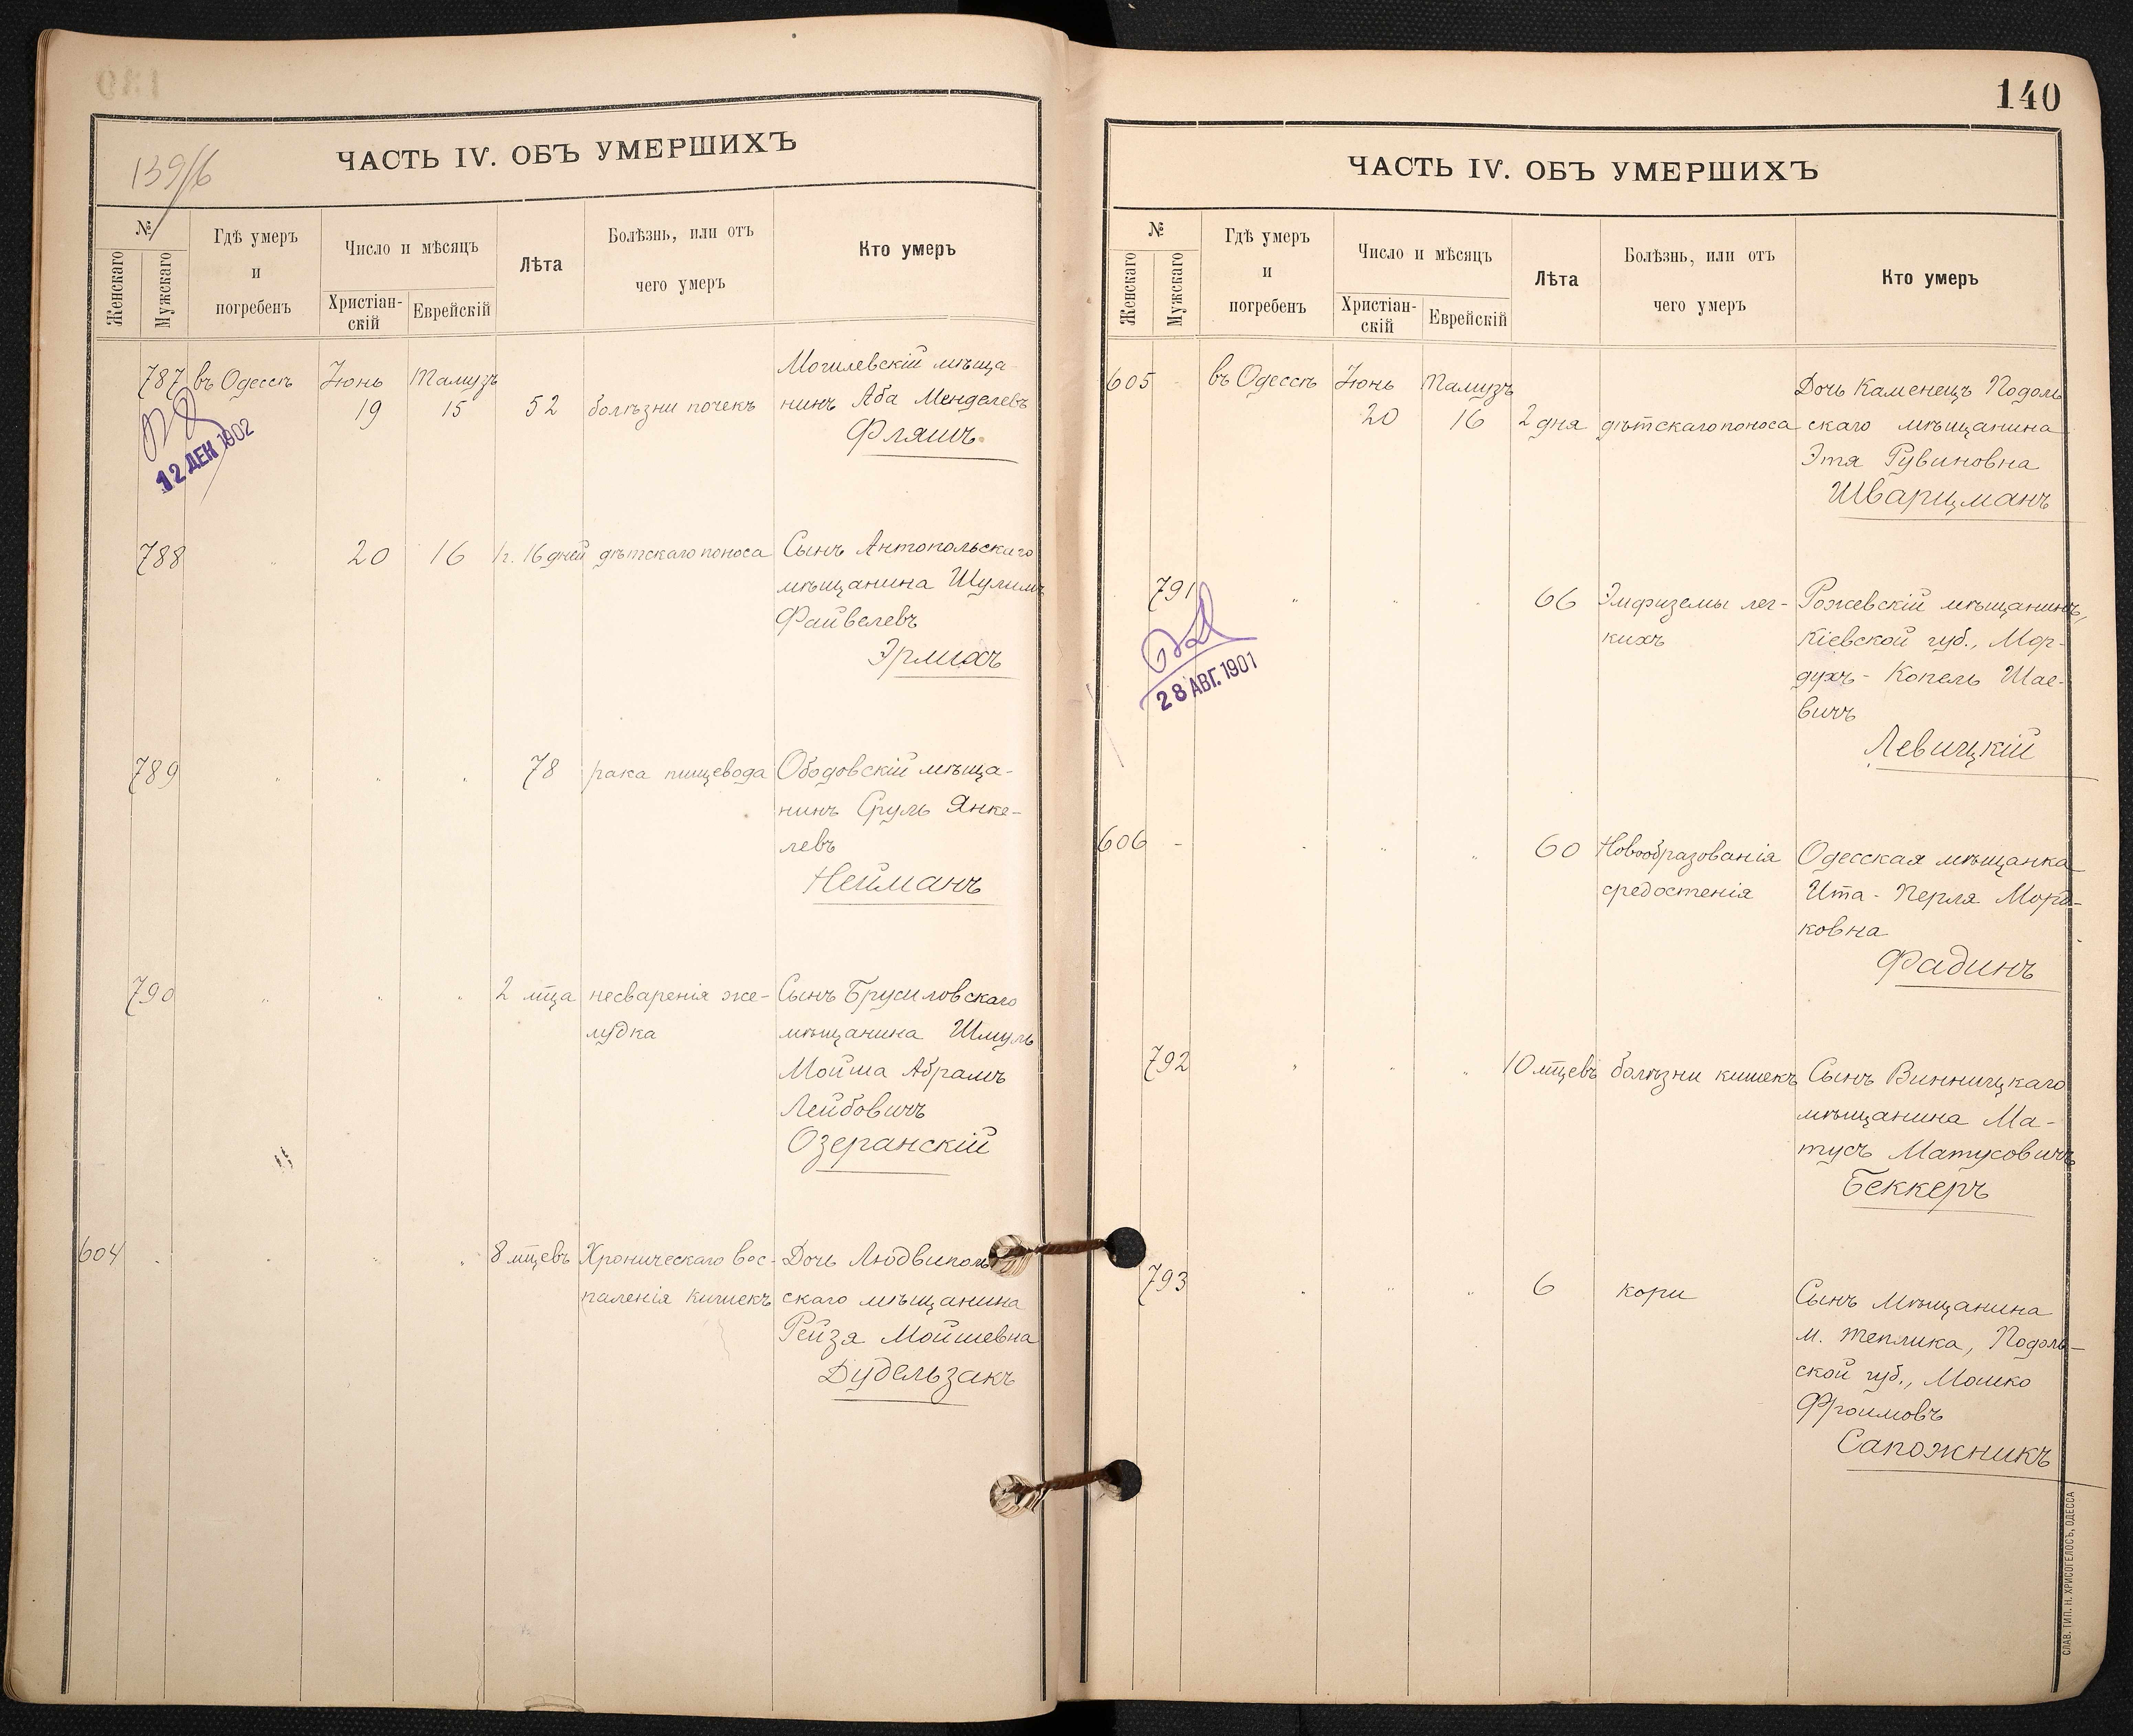 139/б
ЧАСТЬ IV. ОБЪ УМЕРШИХЪ
№
Женскаго
Мужскаго
Гдѣ умеръ
и
погребенъ
Число и мѣсяцъ
Христіан-
скій
Еврейскій
Лѣта
Болѣзнь, или отъ
чего умеръ
Кто умеръ
787 въ Одессѣ Іюнь Тамузъ Могилевскій мѣща
19 15 52 болѣзни почекъ нинъ Аба Менделевъ
Фляшъ
12 ДЕК 1902
788 " 20 16 1 г. 16 дней дѣтскаго поноса Сынъ Антопольскаго
мѣщанина Шулимъ
Файвелевъ
Эрлихъ
789 " " " 78 рака пищевода Ободовскій мѣща-
нинъ Сруль Янке-
левъ
Нейманъ
790 " " " 2 мѣца несваренія же- Сынъ Брусиловскаго
лудка мѣщанина Шмуль
Мойша Абрамъ
Лейбовичъ
Озеранскій
604 " " " 8 мѣцевъ Хроническаго вос- Дочь Людвиполь
паленія кишекъ скаго мѣщанина
Рейзя Мойшевна
Дудельзакъ
140
ЧАСТЬ IV. ОБЪ УМЕРШИХЪ
№
Женскаго
Мужскаго
Гдѣ умеръ
и
погребенъ
Число и мѣсяцъ
Христіан-
скій
Еврейскій
Лѣта
Болѣзнь, или отъ
чего умеръ
Кто умеръ
605 - въ Одессѣ Іюнь Тамузъ Дочь Каменецъ Подоль
20 16 2 дня дѣтскаго поноса скаго мѣщанина
Этя Рувиновна
Шварцманъ
791 " " " 66 Эмфиземы лег- Рожевскій мѣщанинъ,
кихъ Кіевской губ., Мор-
духъ - Копель Шае-
вичъ
Левицкій
28 АВГ. 1901
606 - " " " 60 Новообразованія Одесская мѣщанка
средостенія Ита - ПерляМорд-
ковна
Фадинъ
792 " " " 10 мѣцевъ болѣзни кишекъ Сынъ Винницкаго
мѣщанина Ма-
тусъ Матусовичъ
Беккеръ
793 " " " 6 кори Сынъ Мѣщанина
м. Теплика, Подоль-
ской губ., Мошко
Фроимовъ
Сапожникъ
СЛАВ. ТИП. Н. ХРИСОГЕЛОСЪ, ОДЕССА